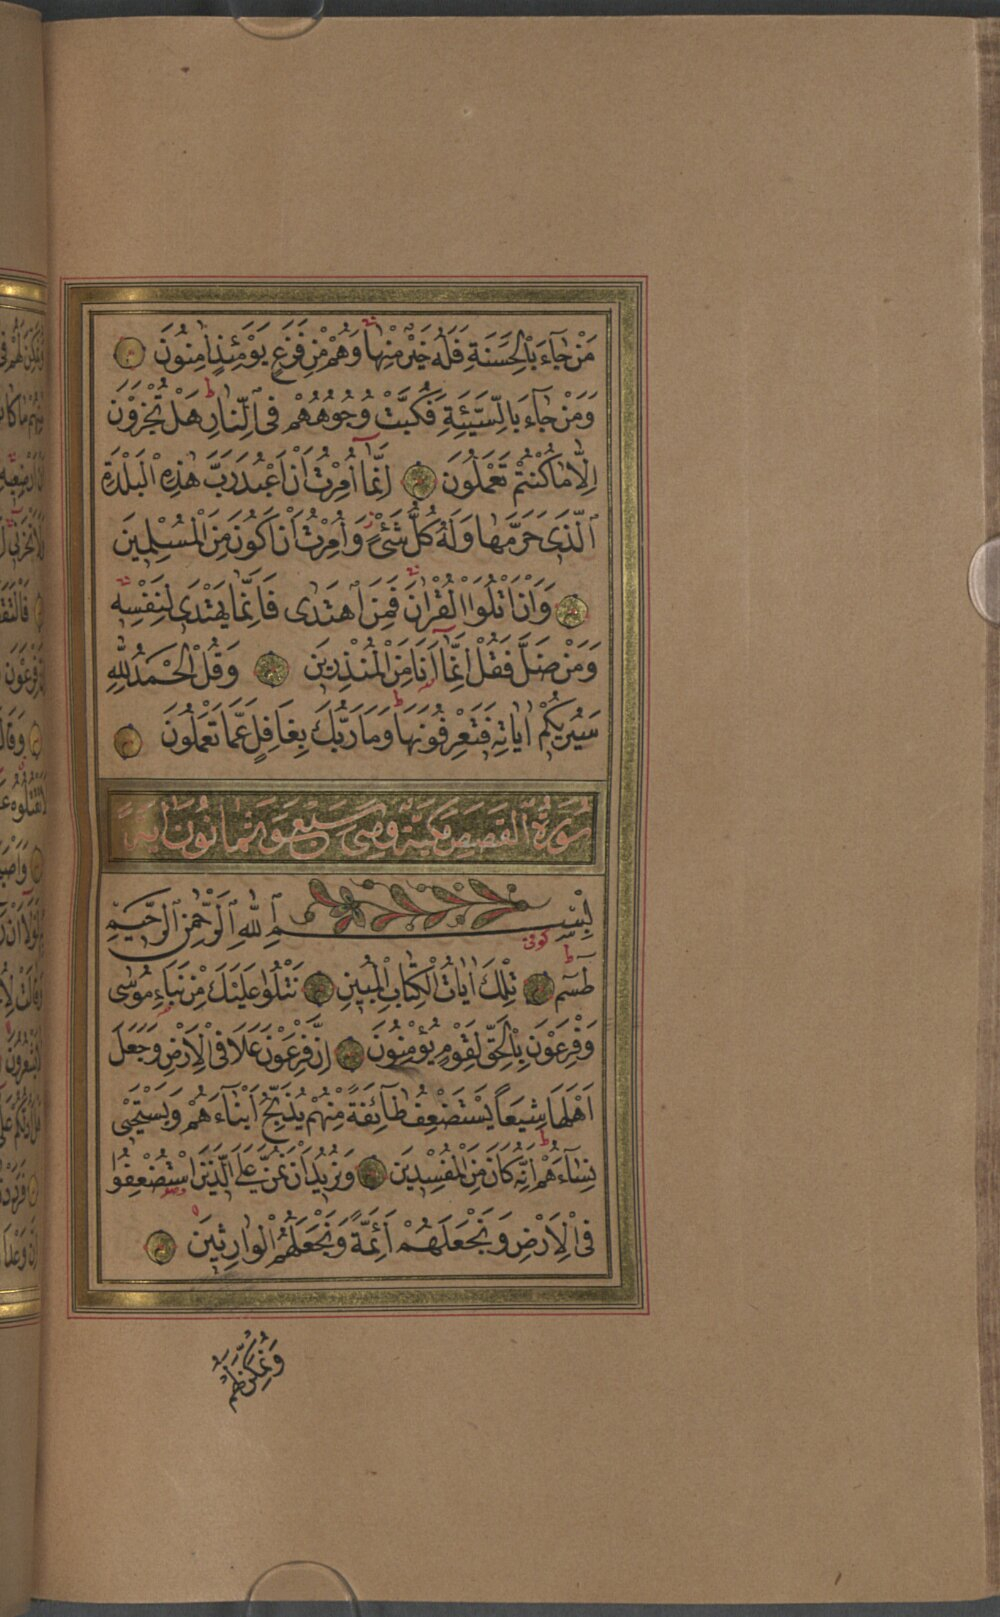 مَنْ جَٓاءَ بِالْحَسَنَةِ فَلَهُ خَيْرٌ مِنْهَا وَهُمْ مِنْ فَزَعٍ يَوْمَئِذٍ اٰمِنُونَ
وَمَنْ جَٓاءَ بِالسَّيِّئَةِ فَكُبَّتْ وُجُوهُهُمْ فِى النَّارِ هَلْ تُجْزَوْنَ
اِلَّا مَا كُنْتُمْ تَعْمَلُونَ اِنَّمَٓا اُمِرْتُ اَنْ اَعْبُدَ رَبَّ هٰذِهِ الْبَلْدَةِ
الَّذِى حَرَّمَهَا وَلَهُ كُلُّ شَىْءٍ وَاُمِرْتُ اَنْ اَكُونَ مِنَ الْمُسْلِمِينَ
وَاَنْ اَتْلُوَا الْقُرْاٰنَ فَمَنِ اهْتَدٰى فَاِنَّمَا يَهْتَدِى لِنَفْسِهِ
وَمَنْ ضَلَّ فَقُلْ اِنَّمَٓا اَنَا مِنَ الْمُنْذِرِينَ وَقُلِ الْحَمْدُ لِلّٰهِ
سَيُرِيكُمْ اٰيَاتِهِ فَتَعْرِفُونَهَا وَمَا رَبُّكَ بِغَافِلٍ عَمَّا تَعْمَلُونَ
سُورَةُ الْقَصَصِ مَكِّيَّةٌ وَهِىَ سَبْعٌ وَثَمَانُونَ اٰيَةً
بِسْمِ اللّٰهِ الرَّحْمٰنِ الرَّحِيمِ
كوفى
طٰسٓمٓ تِلْكَ اٰيَاتُ الْكِتَابِ الْمُبِينِ نَتْلُوا عَلَيْكَ مِنْ نَبَاِ مُوسٰى
وَفِرْعَوْنَ بِالْحَقِّ لِقَوْمٍ يُؤْمِنُونَ اِنَّ فِرْعَوْنَ عَلَا فِى الْاَرْضِ وَجَعَلَ
اَهْلَهَا شِيَعًا يَسْتَضْعِفُ طَٓائِفَةً مِنْهُمْ يُذَبِّحُ اَبْنَٓاءَهُمْ وَيَسْتَحْيِى
نِسَٓاءَهُمْ اِنَّهُ كَانَ مِنَ الْمُفْسِدِينَ وَنُرِيدُ اَنْ نَمُنَّ عَلَى الَّذِينَ اسْتُضْعِفُوا
فِى الْاَرْضِ وَنَجْعَلَهُمْ اَئِمَّةً وَنَجْعَلَهُمُ الْوَارِثِينَ
وَنُمَكِّنَ لَهُمْ